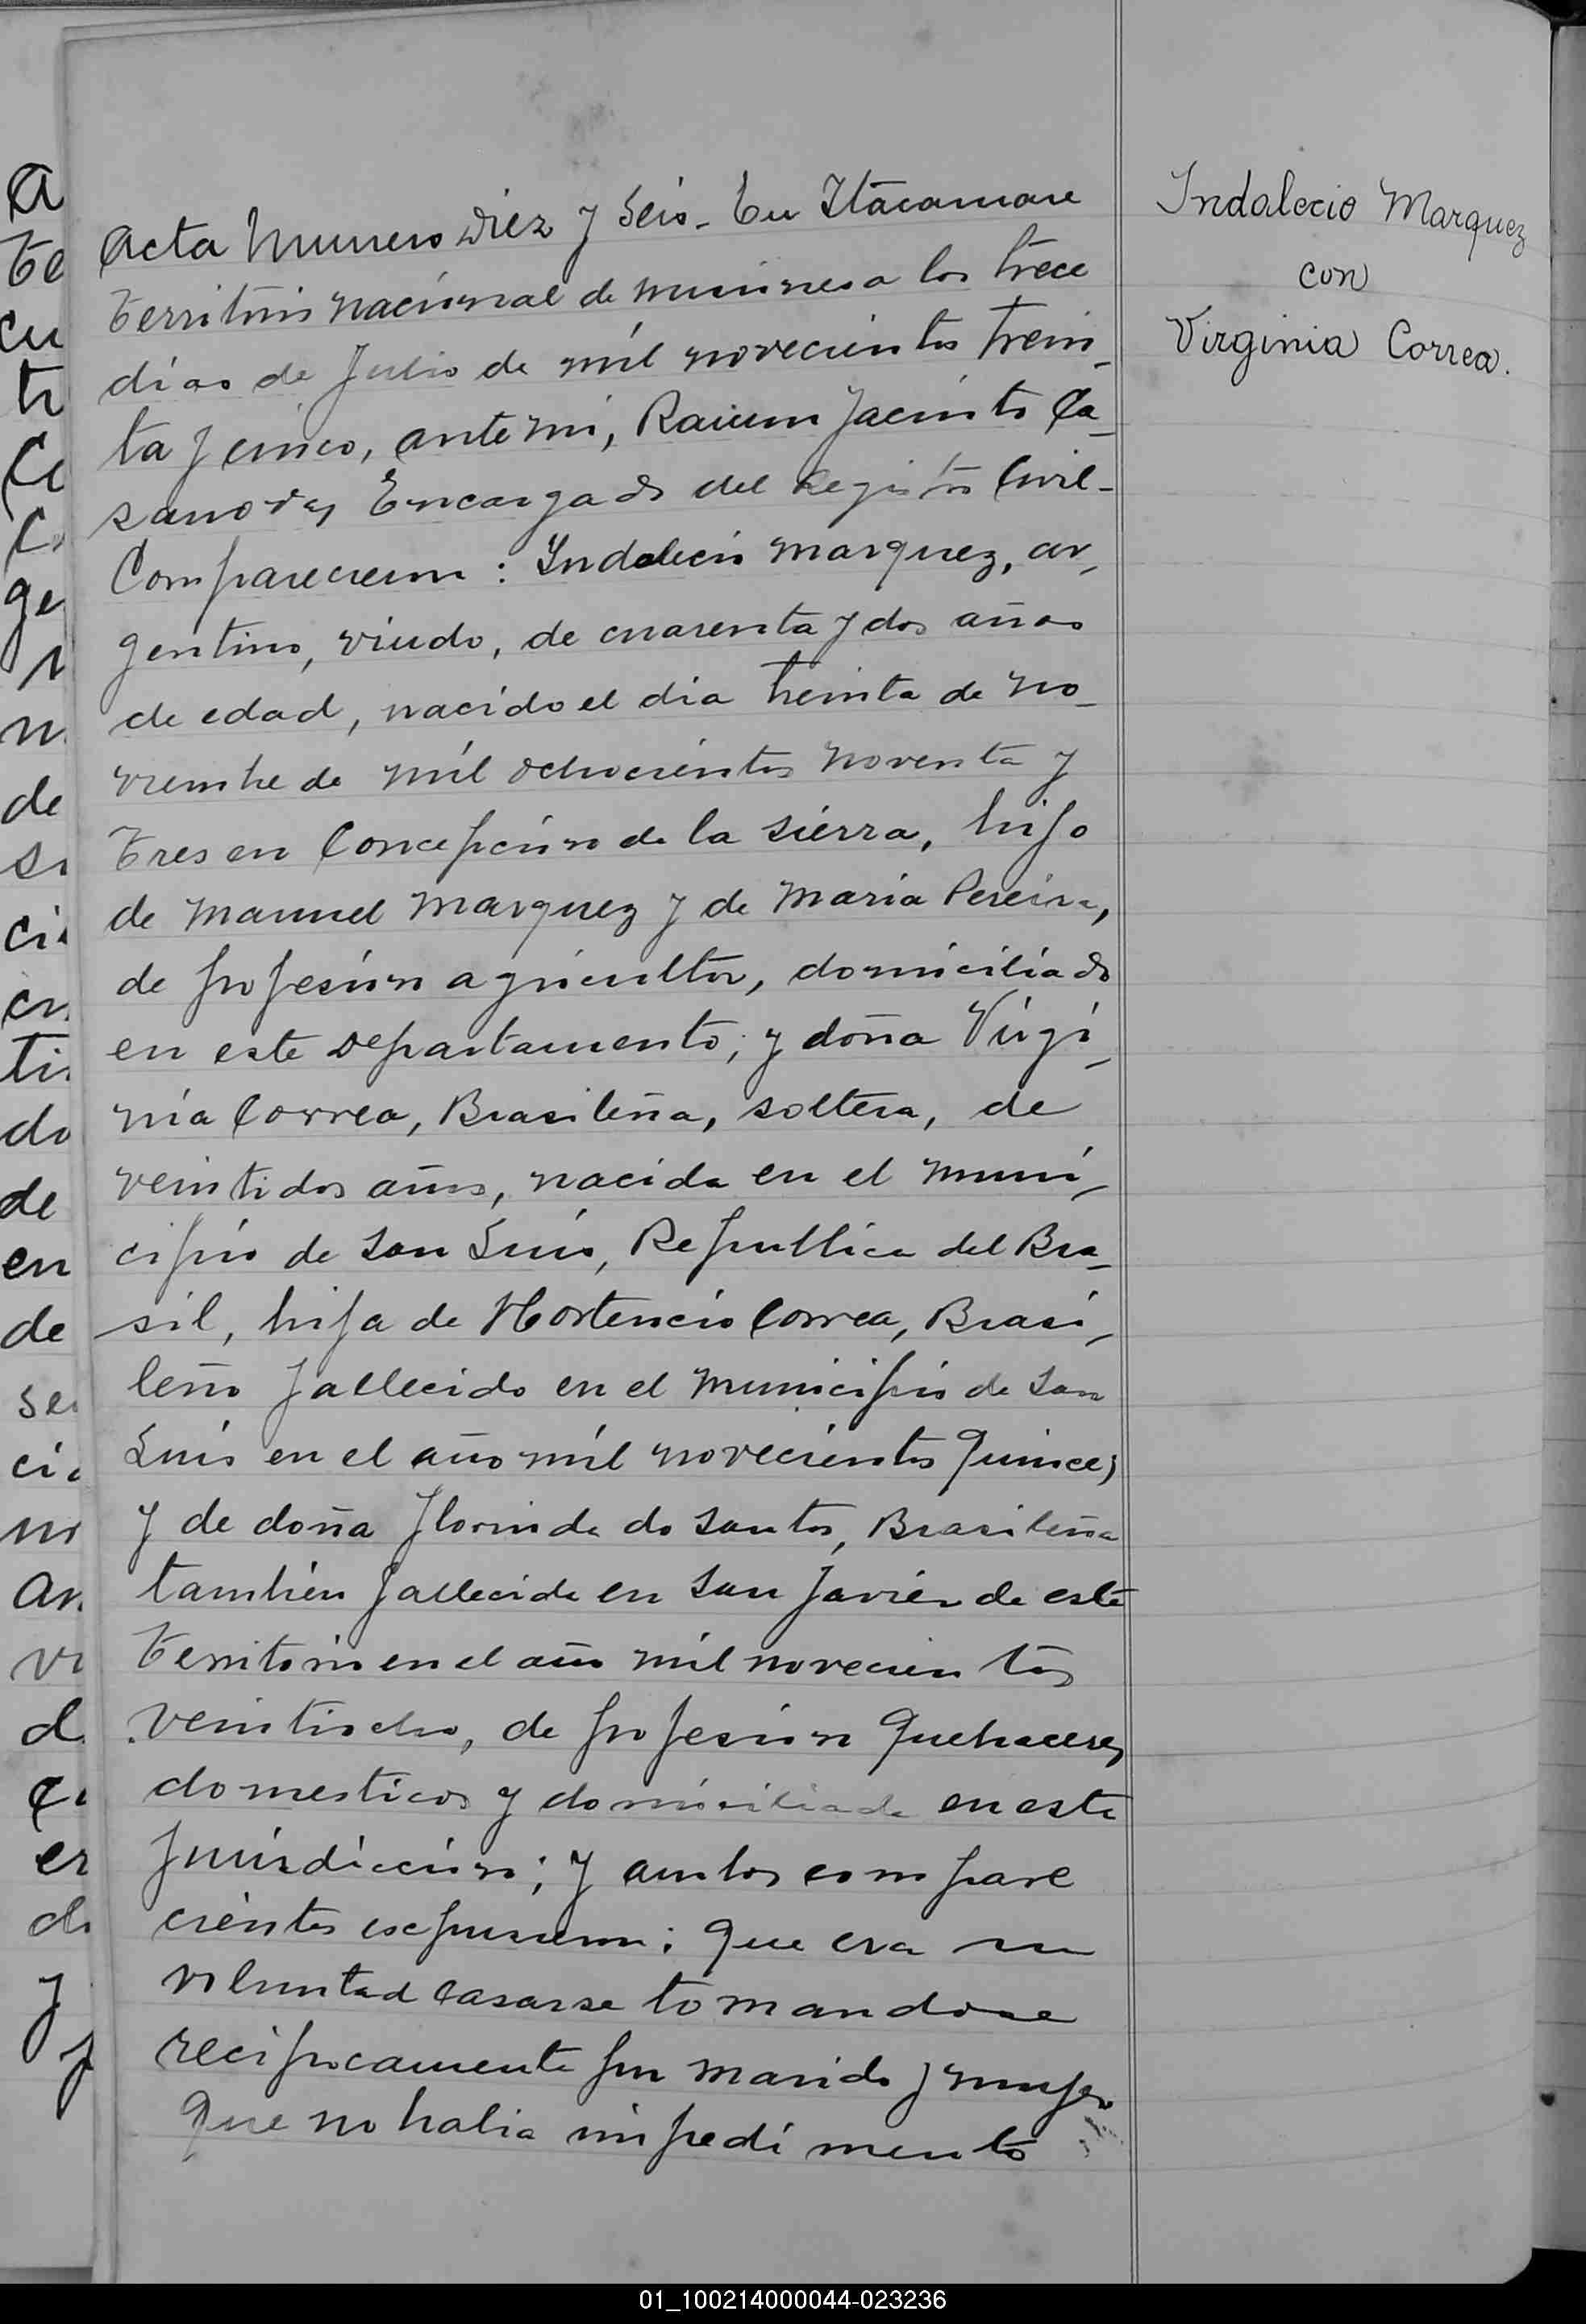 Acta Numero Diez y Seis. En Itacaruare
Territorio nacional de misiones a los trece
días de Julio de mil novecientos trein-
ta y cinco, ante mi, Jacinto Ca-
sanova, Encargado del Registro Civil-
Comparecieron: Indalecio Marquez, ar-
gentino, viudo, de cuarenta y dos años
de edad, nacido el dia treinta de no-
viembre de mil ochocientos noventa y
tres en Concepción de la Sierra, hijo
de Manuel Marquez y de Maria Pereira,
de profesión agricultor, domiciliado
en este Departamento; y doña Virgi-
nia Correa, Brasileña, soltera, de
veintidos años, nacida en el muni-
cipio de San Luis, Republica del Bra-
sil, hija de Hortencio Correa, Brasi-
leño fallecido en el municipio de San
Luis en el año mil novecientos quince;
y de doña Florinda do Santos, Brasileña
también fallecida en San Javier de este
Territorio en el año mil novecientos
veintiocho, de profesión quehaceres
domesticos y domiciliada en esta
Jurisdicción; y ambos compare
cientes expusieron: Que era su
voluntad casarse tomandose
reciprocamente por marido y mujer
Que no habia impedimento
Indalecio Marquez
con
Virginia Correa.
01_100214000044-023236